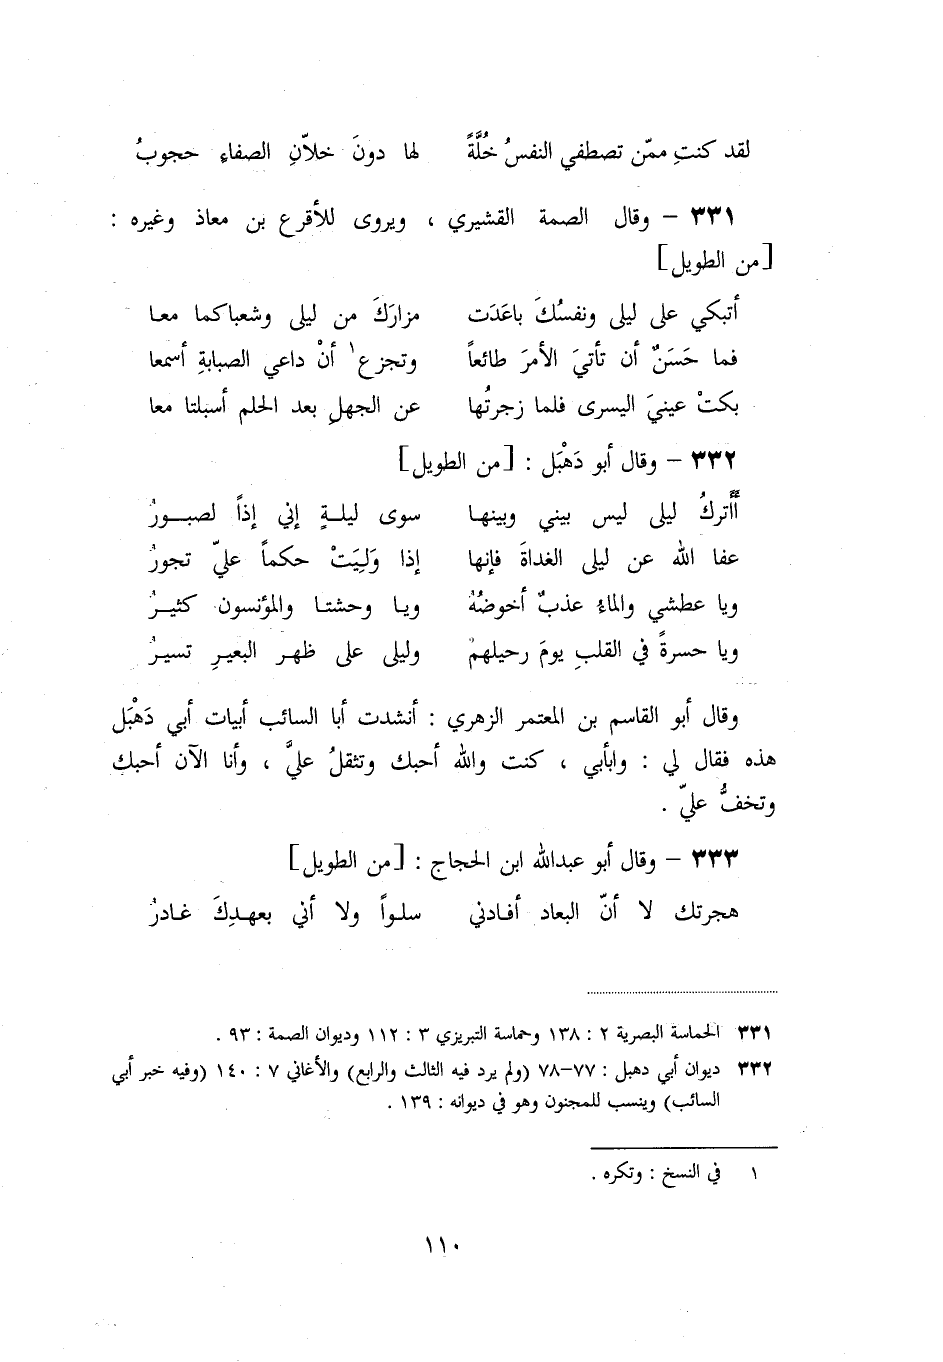 لقد كنتِ ممّن تصطفي النفسُ خُلَّةً لها دونَ خلاّنِ الصفاءِ حجوبُ
٣٣١ – وقال الصمة القشيري ، ويروى للأقرع بن معاذ وغيره :
[من الطويل]
أتبكي على ليلى ونفسُكَ باعَدَت مزارَكَ من ليلى وشعباكما معا
فما حَسَنٌ أن تأتيَ الأمرَ طائعاً وتجزع١ أنْ داعي الصبابةِ أسمعا
بكتْ عينيَ اليسرى فلما زجرتُها عن الجهلِ بعد الحلم أسبلتا معا
٣٣٢ – وقال أبو دَهْبَل : [من الطويل]
أأتركُ ليلى ليس بيني وبينها سوى ليلةٍ إني إذاً لصبورُ
عفا الله عن ليلى الغداةَ فإنها إذا وَلِيَتْ حكماً عليّ تجورُ
ويا عطشي والماءُ عذبٌ أخوضُهُ ويا وحشتا والمؤنسون كثيرُ
ويا حسرةً في القلبِ يومَ رحيلهمْ وليلى على ظهر البعيرِ تسيرُ
وقال أبو القاسم بن المعتمر الزهري : أنشدت أبا السائب أبيات أبي دَهْبَل
هذه فقال لي : وابأبي ، كنت والله أحبك وتثقلُ عليَّ ، وأنا الآن أحبك
وتخفُّ عليّ .
٣٣٣ – وقال أبو عبدالله ابن الحجاج : [من الطويل]
هجرتك لا أنّ البعاد أفادني سلواً ولا أني بعهدِكَ غادرُ
٣٣١ الحماسة البصرية ٢ : ١٣٨ وحماسة التبريزي ٣ : ١١٢ وديوان الصمة : ٩٣ .
٣٣٢ ديوان أبي دهبل : ٧٧–٧٨ (ولم يرد فيه الثالث والرابع) والأغاني ٧ : ١٤٠ (وفيه خبر أبي
السائب) وينسب للمجنون وهو في ديوانه : ١٣٩ .
١ في النسخ : وتكره .
١١٠